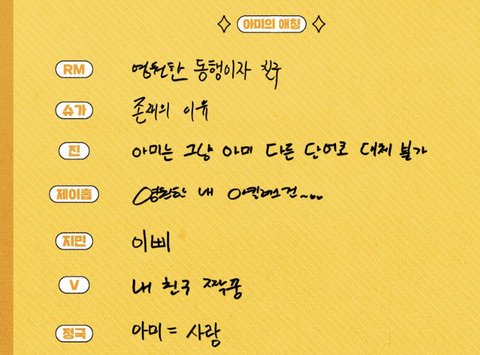 아미의 애칭
RM 영원한 동행이자 친구
슈가 존재의 이유
진 아미는 그냥 아미 다른 단어로 대체 불가
제이홉 영원한 내
지민 이삐
V 내 친구 짝꿍
정국 아미 = 사랑